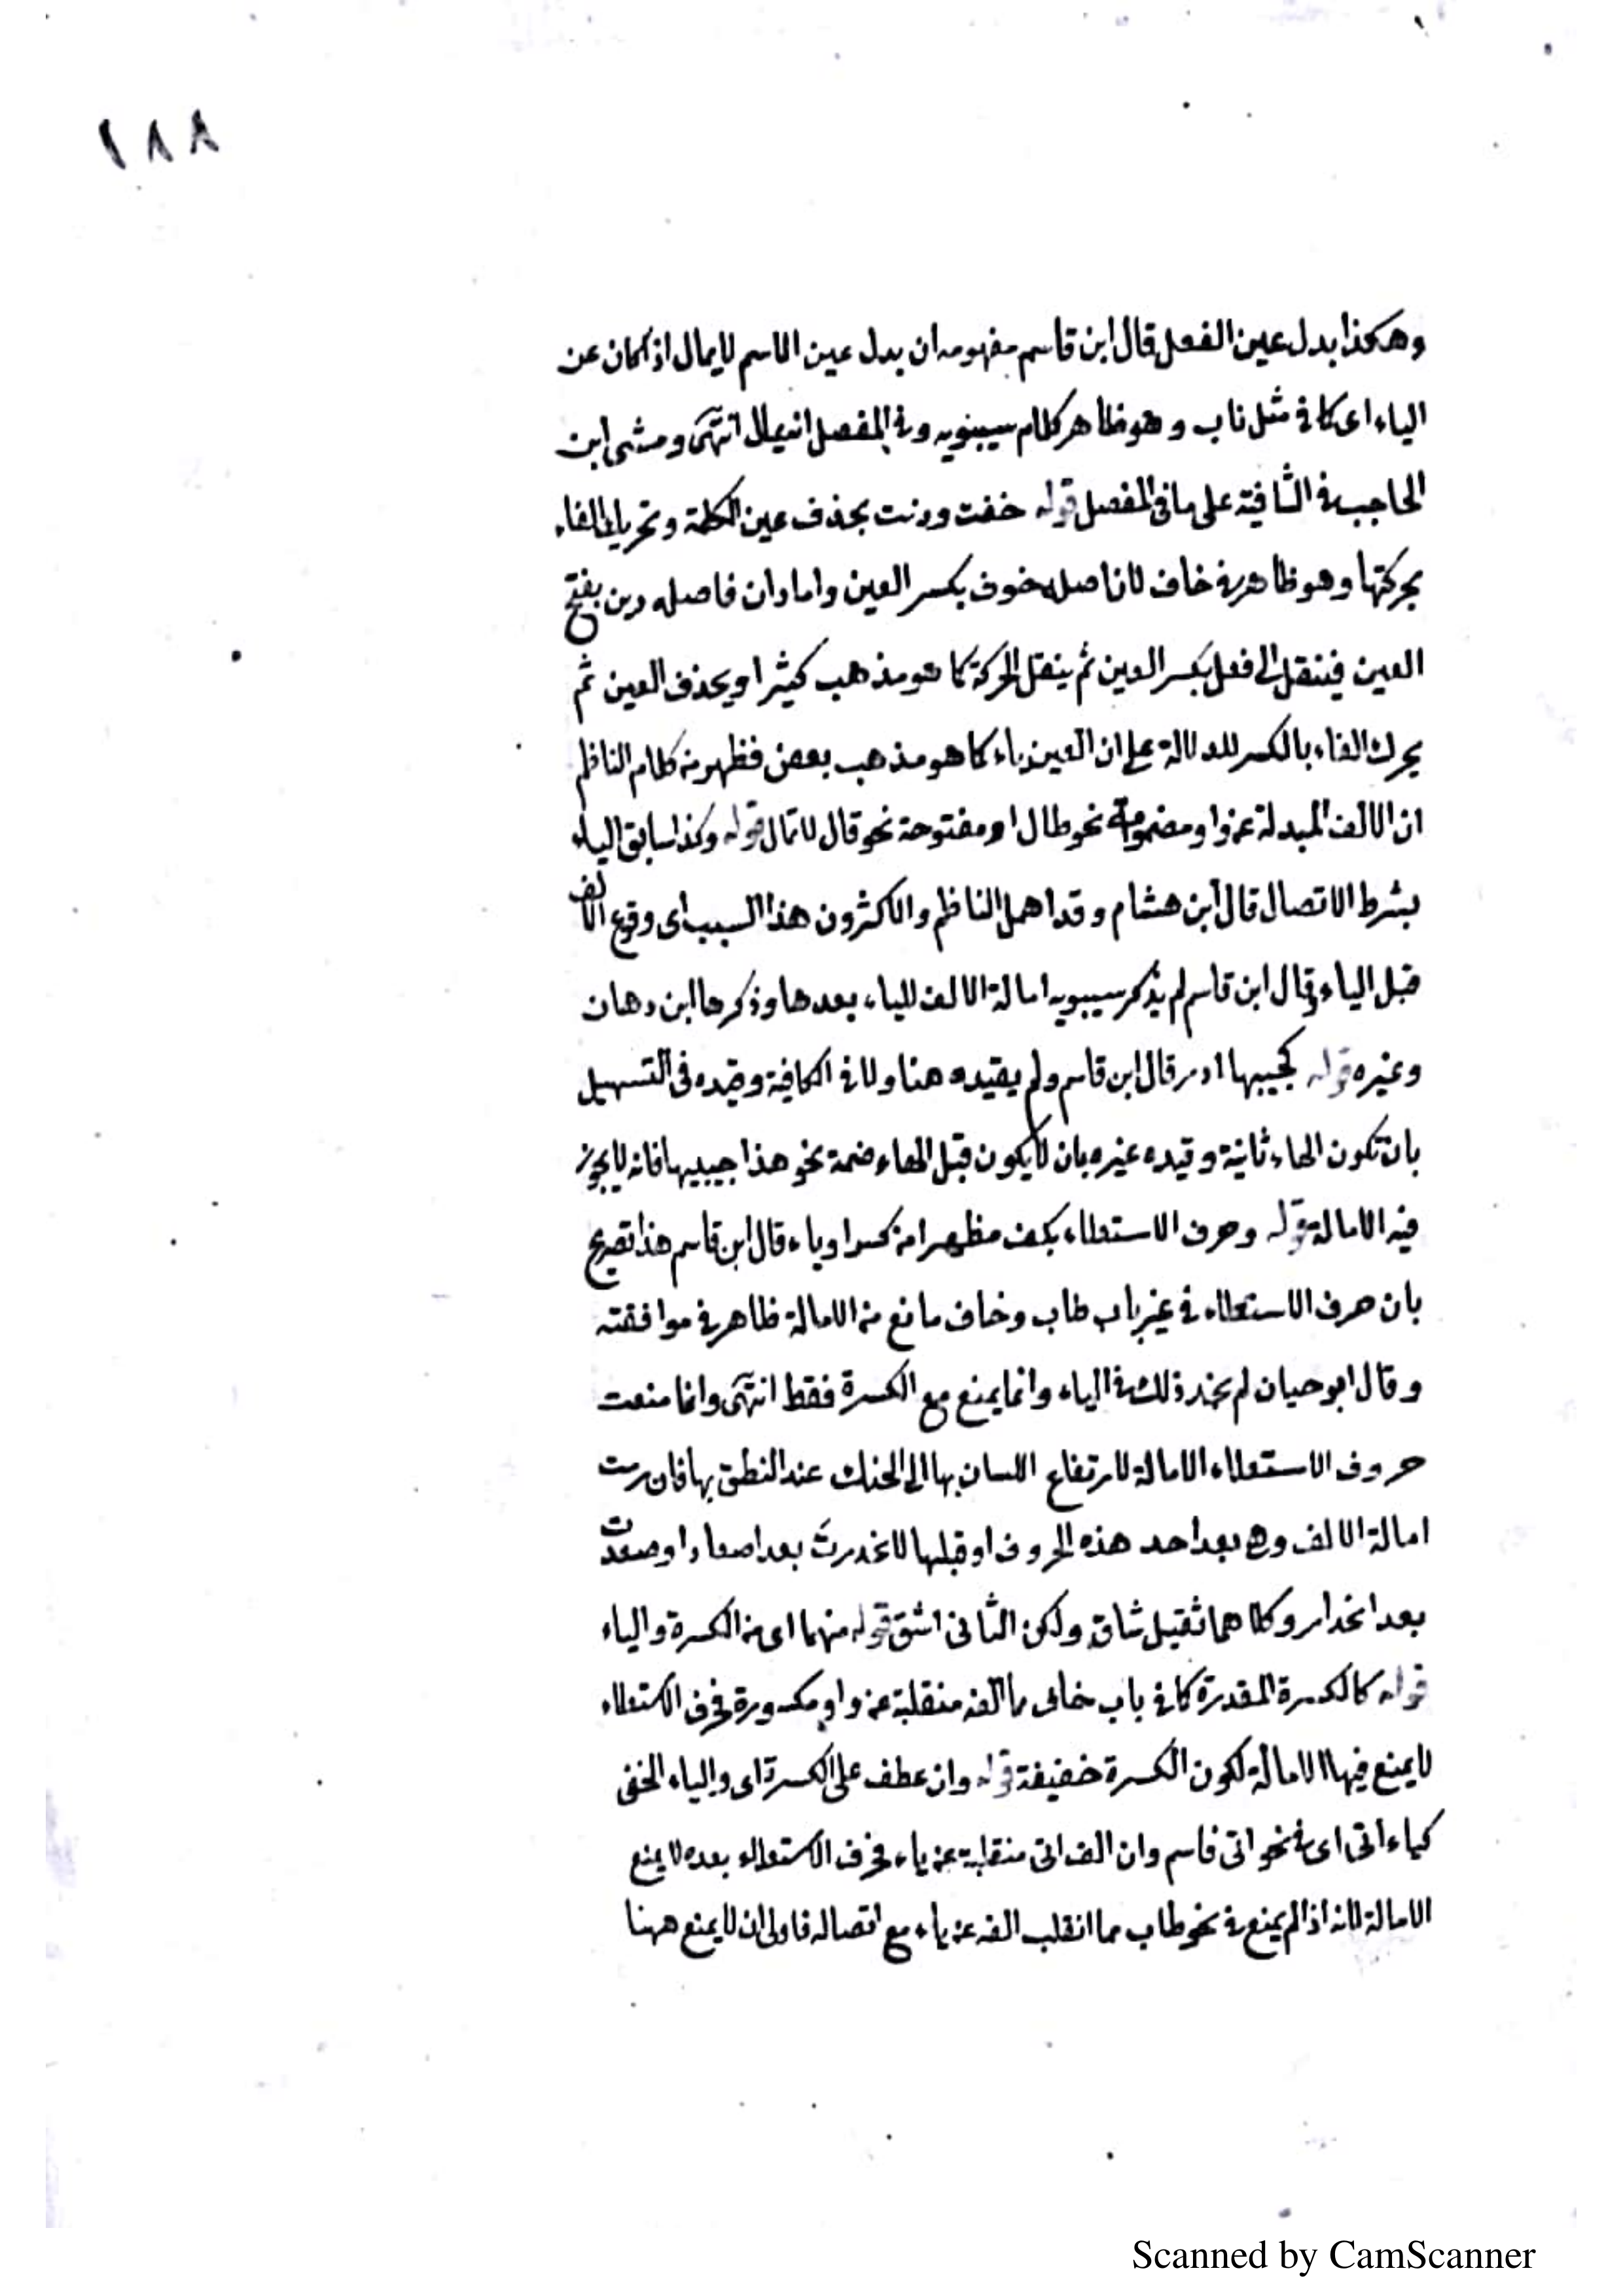 ١٨٨
وهكذا بدل عين الفعل قال ابن قاسم مفهومه ان بدل عين الاسم لايمال اذ كان عن
الياء اى كا فى مثل ناب وهو ظاهر كلام سيبويه وفى المفصل انه يمال انتهى ومشى ابن
الحاجب فى الشافية على ما فى المفصل قوله خفت ودنت بحذف عين الكلمة وتحريك الفاء
بحركتها وهو ظاهر فى خاف لان اصله خوف بكسر العين واما دان فاصله دين بفتح
العين فينقل الى فعل بكسر العين ثم ينقل الحركة كا هو مذهب كثير او يحذف العين ثم
يحرك الفاء بالكسر للدلالة على ان العين ياء كا هو مذهب بعض فظهر من كلام الناظم
ان الالف المبدلة عن واو مضمومة نحو طال او مفتوحة نحو قال لا تمال قوله وكذا سابق الياء
بشرط الاتصال قال ابن هشام وقد اهمل الناظم والاكثرون هذا السبب اى وقوع الالف
قبل الياء وقال ابن قاسم لم يذكر سيبويه امالة الالف للياء بعدها وذكرها ابن دهان
وغيره قوله كجيبها ادر قال ابن قاسم ولم يقيده هنا ولا فى الكافية وقيده فى التسهيل
بان تكون الهاء ثانية وقيده غيره بان لا يكون قبل الهاء ضمة نحو هذا جيبها فانه لا يجوز
فيه الامالة قوله وحرف الاستعلاء يكف مظهرا من كسر او ياء قال ابن قاسم هذا تصريح
بان حرف الاستعلاء فى غير باب طاب وخاف مانع من الامالة ظاهر فى موافقته
وقال ابو حيان لم نجد ذلك فى الياء وانما يمنع مع الكسرة فقط انتهى وانما منعت
حروف الاستعلاء الامالة لارتفاع اللسان بها الى الحنك عند النطق بها فان رمت
امالة الالف وهى بعد احد هذه الحروف او قبلها لانحدرت بعد اصعاد او صعدت
بعد انحدار وكلاهما ثقيل شاق ولكن الثانى اشق قوله منهما اى من الكسرة والياء
قوله كالكسرة المقدرة كا فى باب خاف مما الفه منقلبة عن واو مكسورة فحرف الاستعلاء
لا يمنع فيها الامالة لكون الكسرة خفيفة قوله وان عطف على الكسرة اى والياء الخفى
كياء اتى اى فى نحو اتى قاسم وان الف اتى منقلبة عن ياء فحرف الاستعلاء بعده لا يمنع
الامالة لانه اذا لم يمنع فى نحو طاب مما انقلب الفه عن ياء مع اتصاله فاولى ان لا يمنع ههنا
Scanned by CamScanner